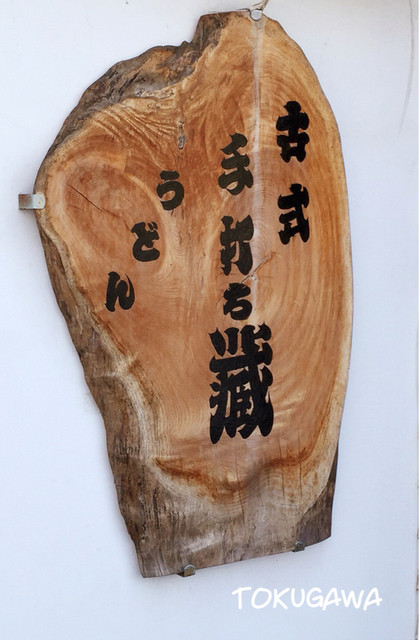 古式
手打ち
蔵
うどん
TOKUGAWA